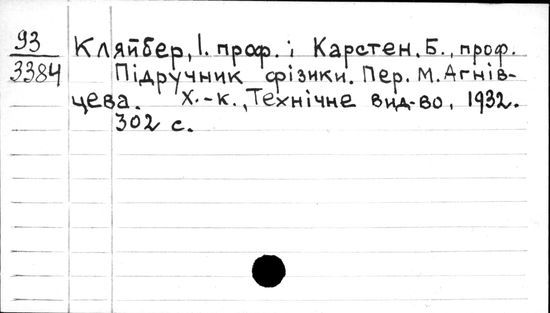 93 Кляйбер, І. проф. і Карстен, Б., проф.
3384 Підручник фізики. Пер. М. Агнів-
цева. Х.-К., Технічне вид-во, 1932.
302 с.